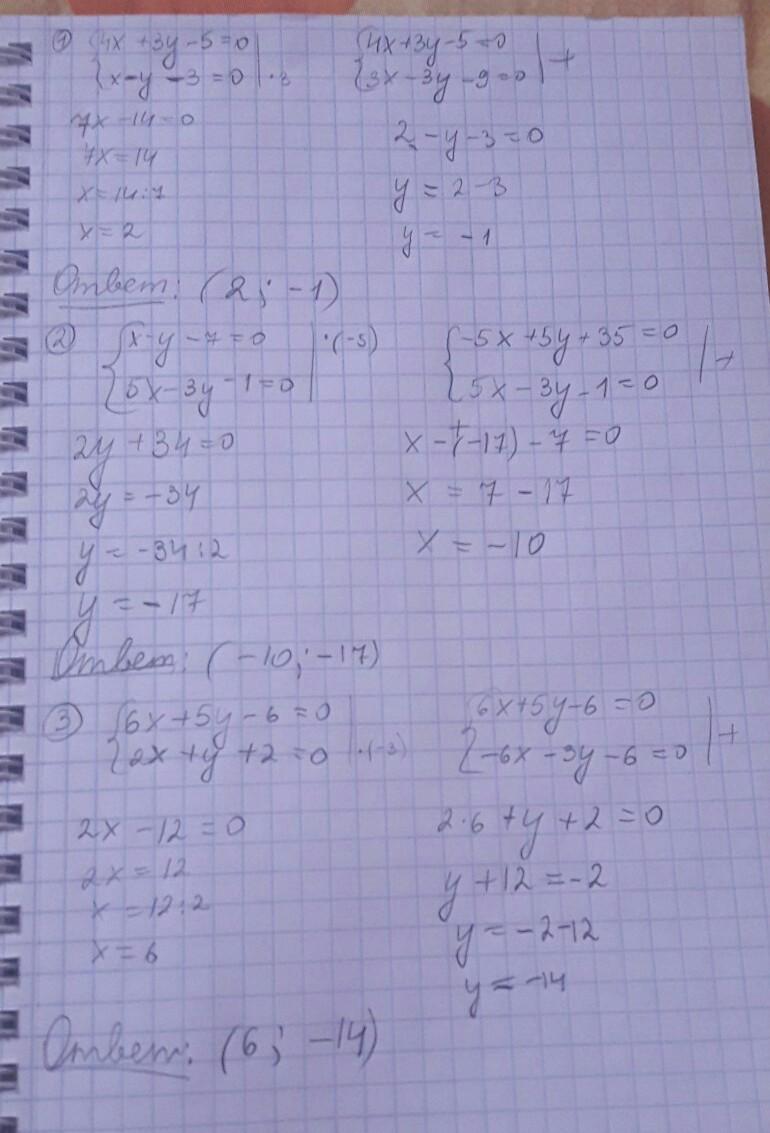 ① {4x + 3y - 5 = 0
{x - y - 3 = 0 | · 3
{4x + 3y - 5 = 0
{3x - 3y - 9 = 0 | +
7x - 14 = 0
7x = 14
x = 14 : 7
x = 2
2 - y - 3 = 0
y = 2 - 3
y = -1
Ответ: (2; -1)
② {x - y - 7 = 0 | · (-5)
{5x - 3y - 1 = 0
{-5x + 5y + 35 = 0
{5x - 3y - 1 = 0 | +
2y + 34 = 0
2y = -34
y = -34 : 2
y = -17
x - (-17) - 7 = 0
x = 7 - 17
x = -10
Ответ: (-10; -17)
③ {6x + 5y - 6 = 0
{2x + y + 2 = 0 | · (-3)
{6x + 5y - 6 = 0
{-6x - 3y - 6 = 0 | +
2x - 12 = 0
2x = 12
x = 12 : 2
x = 6
2 · 6 + y + 2 = 0
y + 12 = -2
y = -2 - 12
y = -14
Ответ: (6; -14)